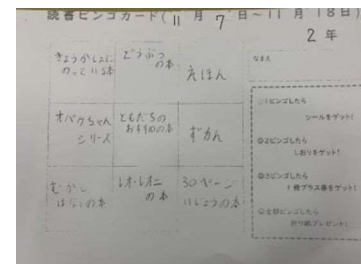 読書ビンゴカード(11月7日～11月18日)
2年
きょうかしょに
のっている本
どうぶつ
の本
えほん
オバケちゃん
シリーズ
ともだちの
おすすめの本
ずかん
むかし
ばなしの本
レオ・レオニ
の本
30ページ
いじょうの本
なまえ
①1ビンゴしたら
シールをゲット!
②2ビンゴしたら
しおりをゲット!
③3ビンゴしたら
1冊プラス券をゲット!
④全部ビンゴしたら
折り紙プレゼント!